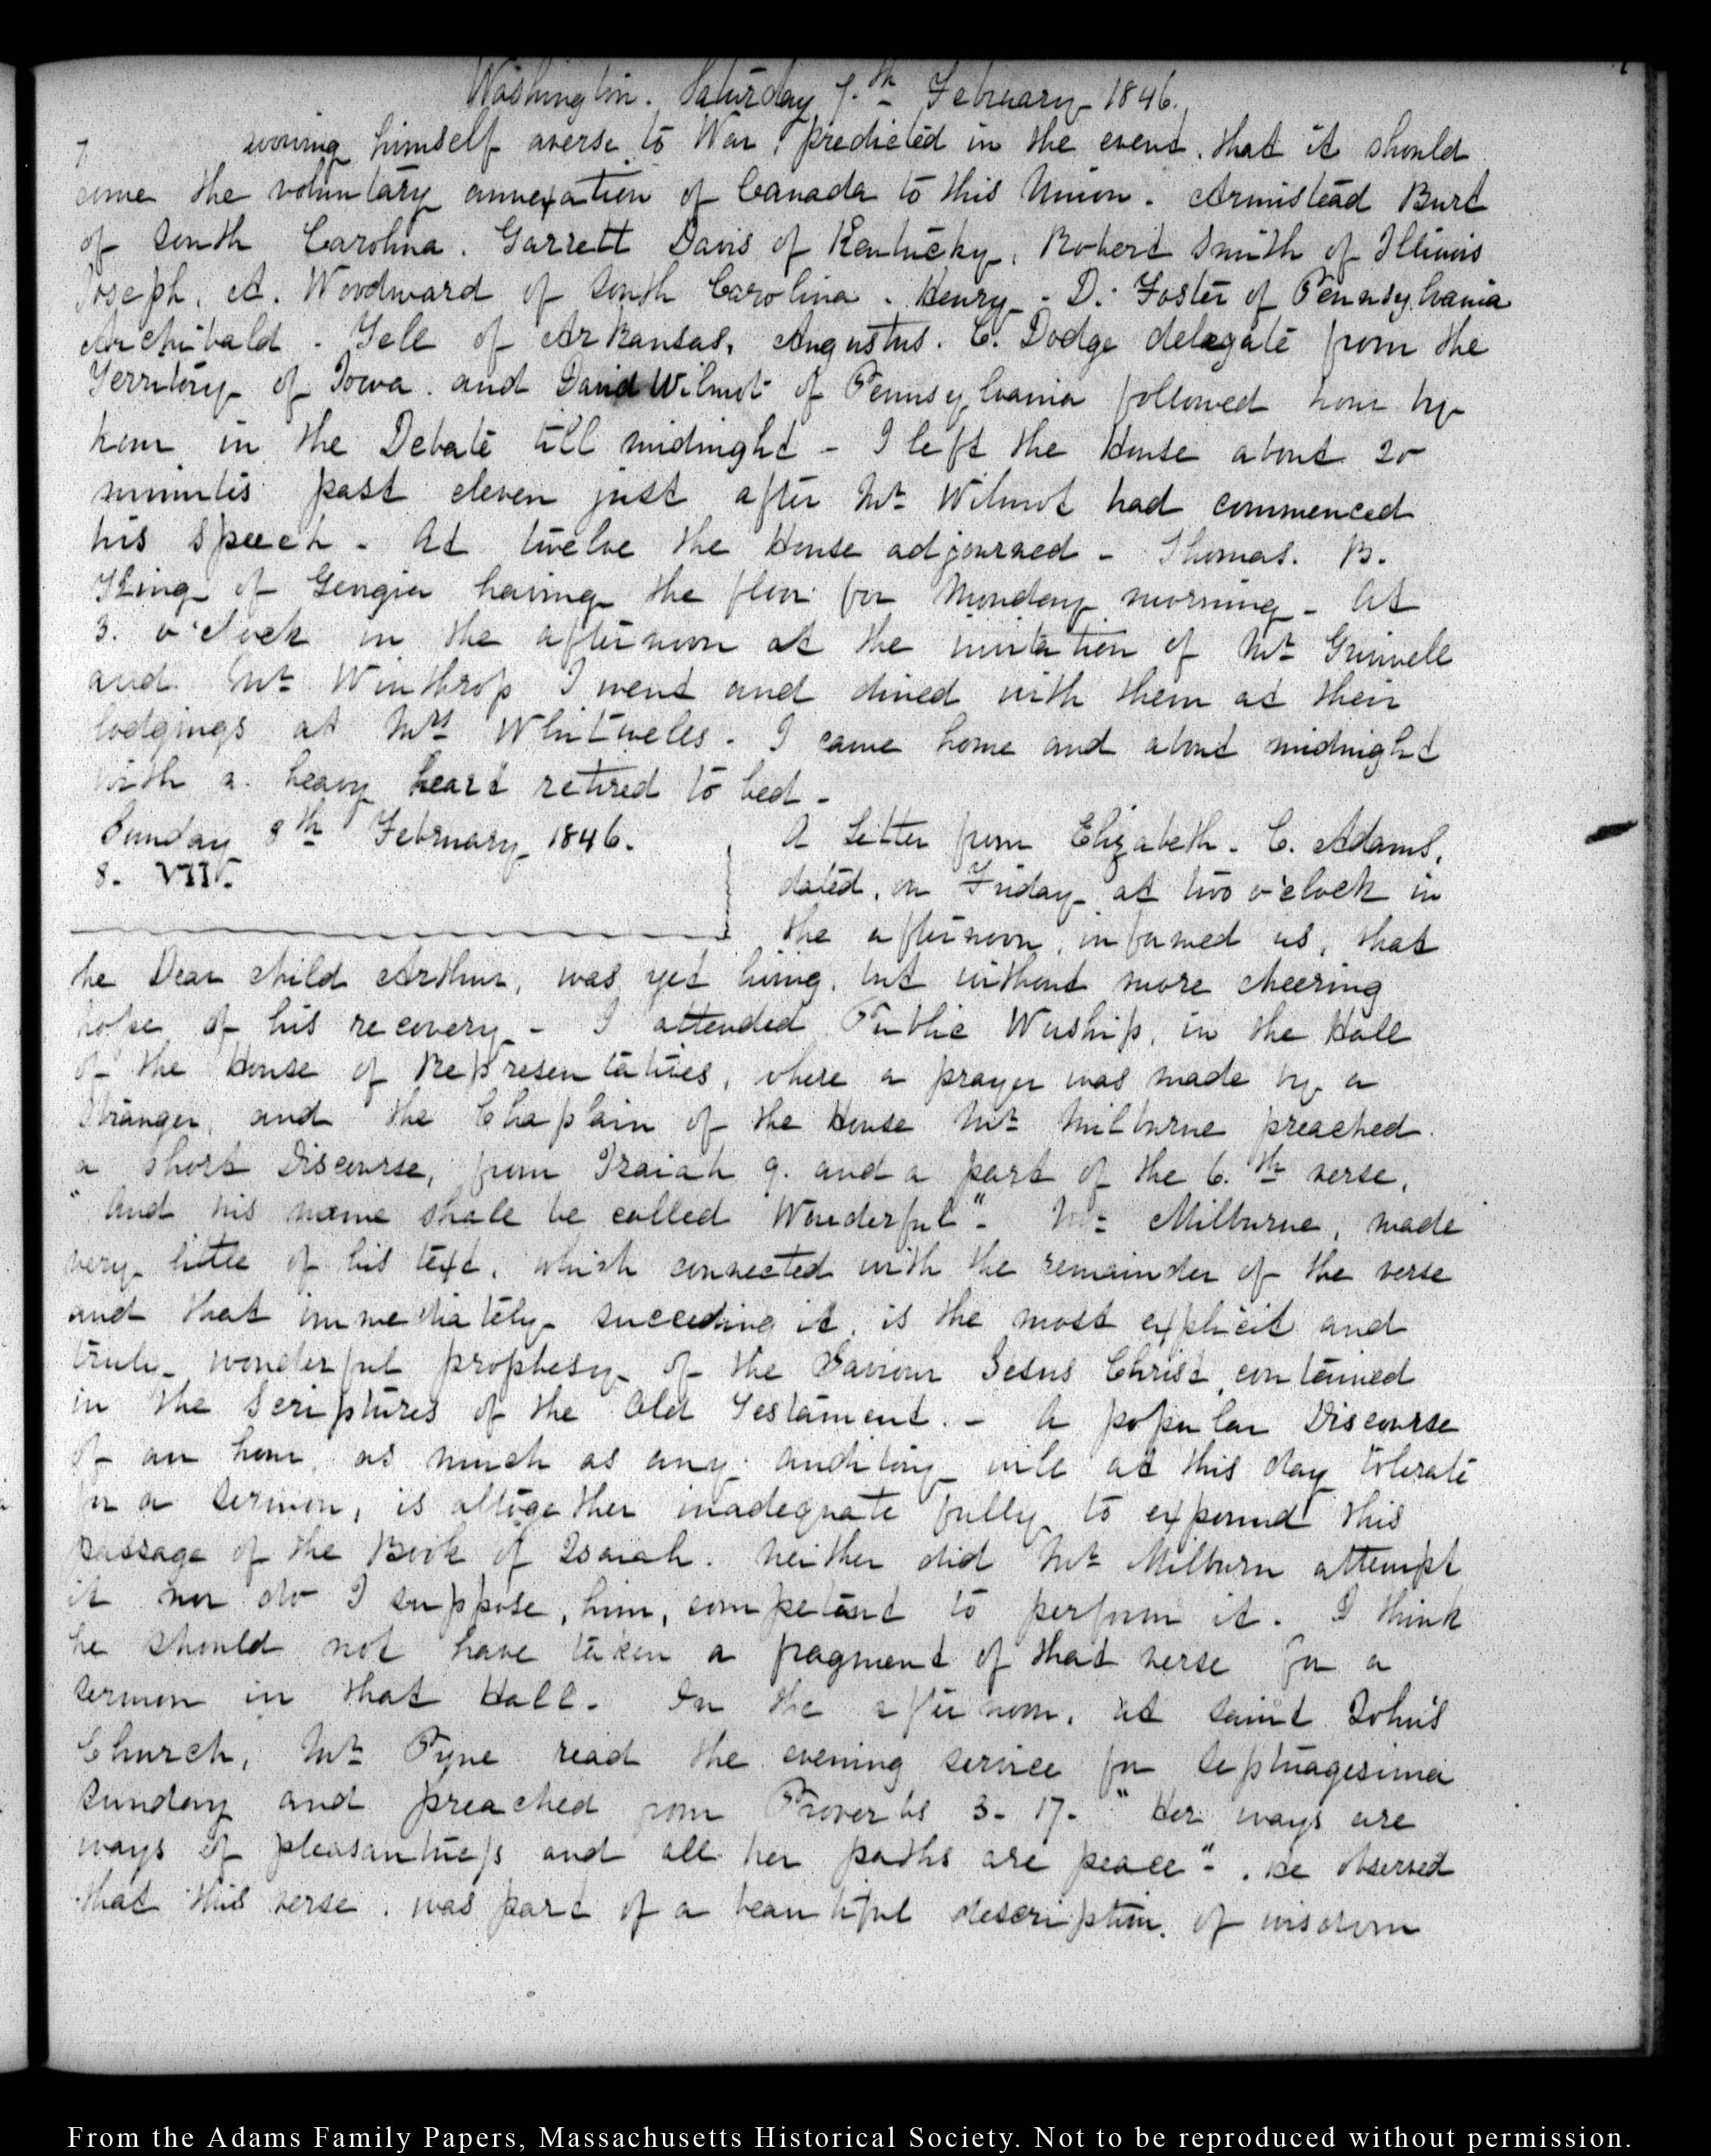 Washington. Saturday 7.th February 1846.
7. avowing himself averse to War, predicted in the event, that it should
come the voluntary annexation of Canada to this Union. Armistead Burt
of South Carolina. Garrett Davis of Kentucky, Robert Smith of Illinois
Joseph. A. Woodward of South Carolina. Henry. D. Foster of Pennsylvania
Archibald. Yell of Arkansas, Augustus. C. Dodge delegate from the
Territory of Iowa. and David Wilmot of Pennsylvania followed hour by
hour in the Debate till midnight - I left the House about 20
minutes past eleven just after Mr. Wilmot had commenced
his speech - At twelve the House adjourned - Thomas. B.
King of Georgia having the floor for Monday morning - At
3. o'clock in the afternoon at the invitation of Mr. Grinnell
and Mr. Winthrop I went and dined with them at their
lodgings at Mrs Whitwells. I came home and about midnight
with a heavy heart retired to bed -
Sunday 8th February 1846.
8. VII.
A Letter from Elizabeth. C. Adams,
dated, on Friday at two o'clock in
the afternoon, informed us, that
the Dear child Arthur, was yet living, but without more cheering
hope of his recovery - I attended Public Worship, in the Hall
of the House of Representatives, where a prayer was made by a
Stranger, and the Chaplain of the House Mr. Milburne preached.
a short Discourse, from Isaiah 9. and a part of the 6.th verse,
"And his name shall be called Wonderful" - Mr. Milburne, made
very little of his text, which connected with the remainder of the verse
and that immediately succeeding it, is the most explicit and
truly wonderful prophesy of the Saviour Jesus Christ, contained
in the Scriptures of the Old Testament. - A popular Discourse
of an hour, as much as any auditory will at this day tolerate
for a sermon, is altogether inadequate fully to expound this
passage of the Book of Isaiah. Neither did Mr. Milburn attempt
it nor do I suppose, him, competent to perform it. I think
he should not have taken a fragment of that verse for a
sermon in that Hall. In the afternoon, at Saint John's
Church, Mr. Pyne read the evening service for Septuagesima
Sunday and preached from Proverbs 3. 17. "Her ways are
ways of pleasantness and all her paths are peace" - . he observed
that this verse, was part of a beautiful description, of wisdom
From the Adams Family Papers, Massachusetts Historical Society. Not to be reproduced without permission.